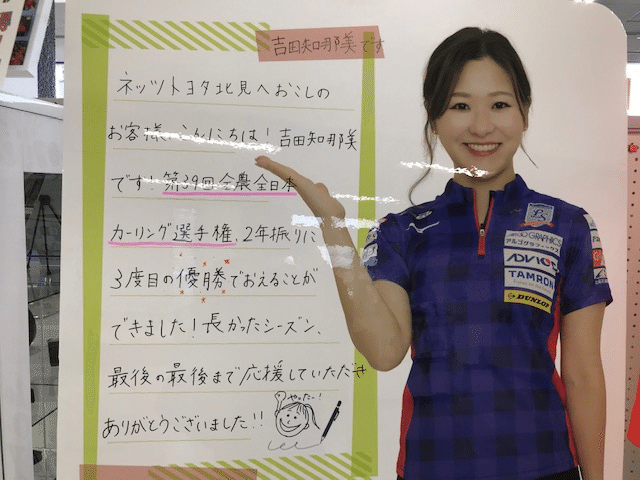 吉田知那美です
ネッツトヨタ北見へおこしの
お客様、こんにちは！吉田知那美
です！第39回全農全日本
カーリング選手権、2年振りに
3度目の優勝でおえることが
できました！長かったシーズン、
最後の最後まで応援していただき
ありがとうございました!!
やったー！
アルゴグラフィックス
ADVICS
TAMRON
DUNLOP